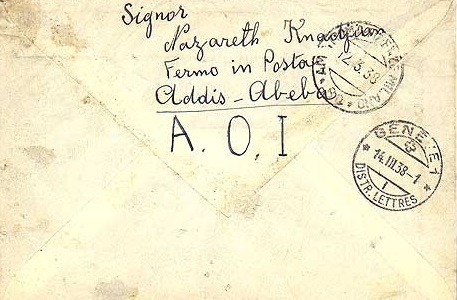 Signor
Nazareth
Fermo in Posta
Addis-Abeba
A. O. I
12.3.38
GENÈVE 1
14.III.38-1
1
DISTR. LETTRES